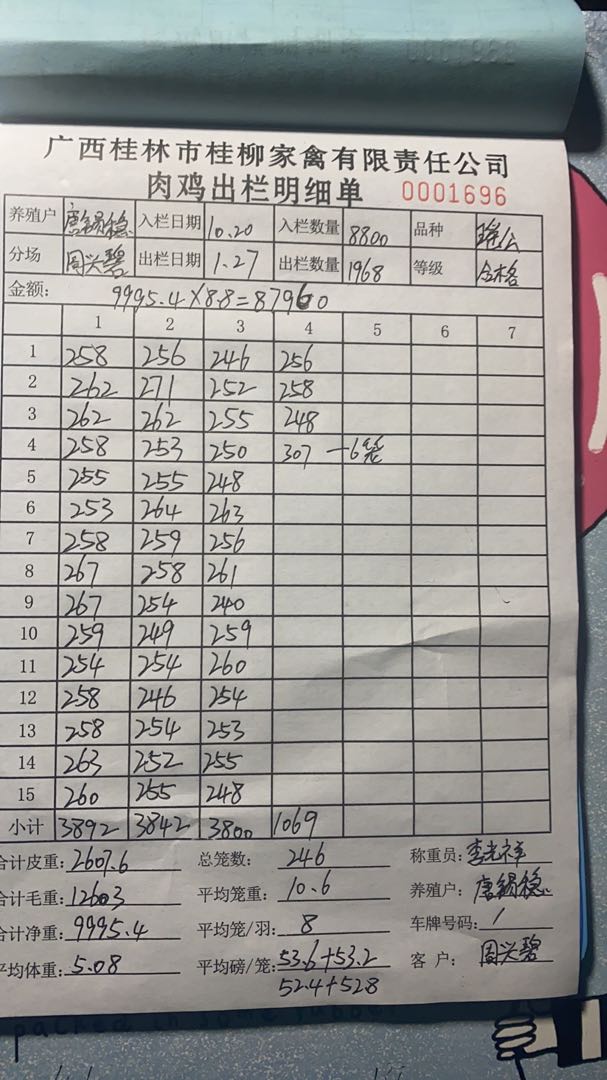 广西桂林市桂柳家禽有限责任公司
肉鸡出栏明细单 0001696
养殖户 唐锡稳 入栏日期 10.20 入栏数量 8800 品种 瑶公
分场 周兴碧 出栏日期 1.27 出栏数量 1968 等级 合格
金额: 9995.4×8.8=87960
1 2 3 4 5 6 7
1 258 256 246 256
2 262 271 252 258
3 262 262 255 248
4 258 253 250 307 —6笼
5 255 255 248
6 253 264 263
7 258 259 256
8 267 258 261
9 267 254 240
10 259 249 259
11 254 254 260
12 258 246 254
13 258 254 253
14 263 252 255
15 260 255 248
小计 3892 3842 3800 1069
合计皮重: 2607.6 总笼数: 246 称重员: 李光祥
合计毛重: 12603 平均笼重: 10.6 养殖户: 唐锡稳
合计净重: 9995.4 平均笼/羽: 8 车牌号码: /
平均体重: 5.08 平均磅/笼: 53.6+53.2 客户: 周兴碧
52.4+52.8